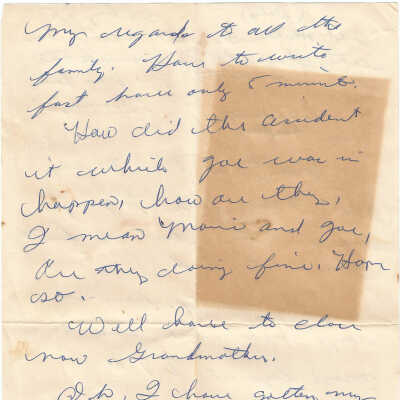 My regards to all the
family. Have to write
fast have only 5 minute.
How did the accident
it which Joe was in
happen, how are they,
I mean Marie and Joe,
Are they doing fine. Hope
so.
Will have to close
now Grandmother.
Oh, I have gotten my